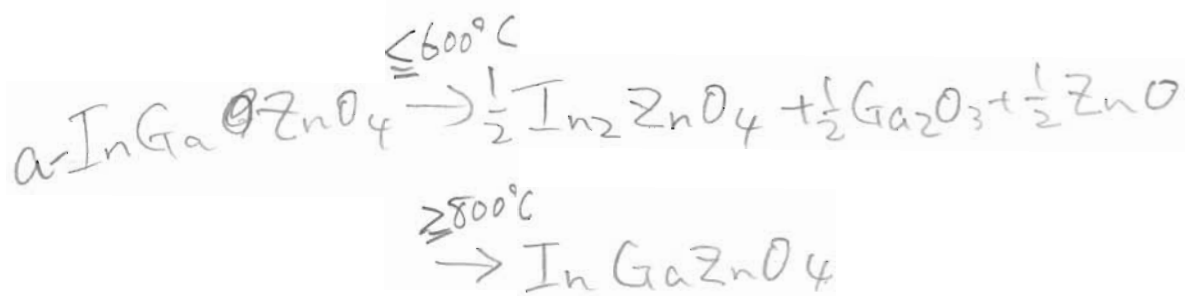 ≦600°C
a-InGaZnO₄ → ½ In₂ZnO₄ + ½ Ga₂O₃ + ½ ZnO
≧800°C
→ InGaZnO₄